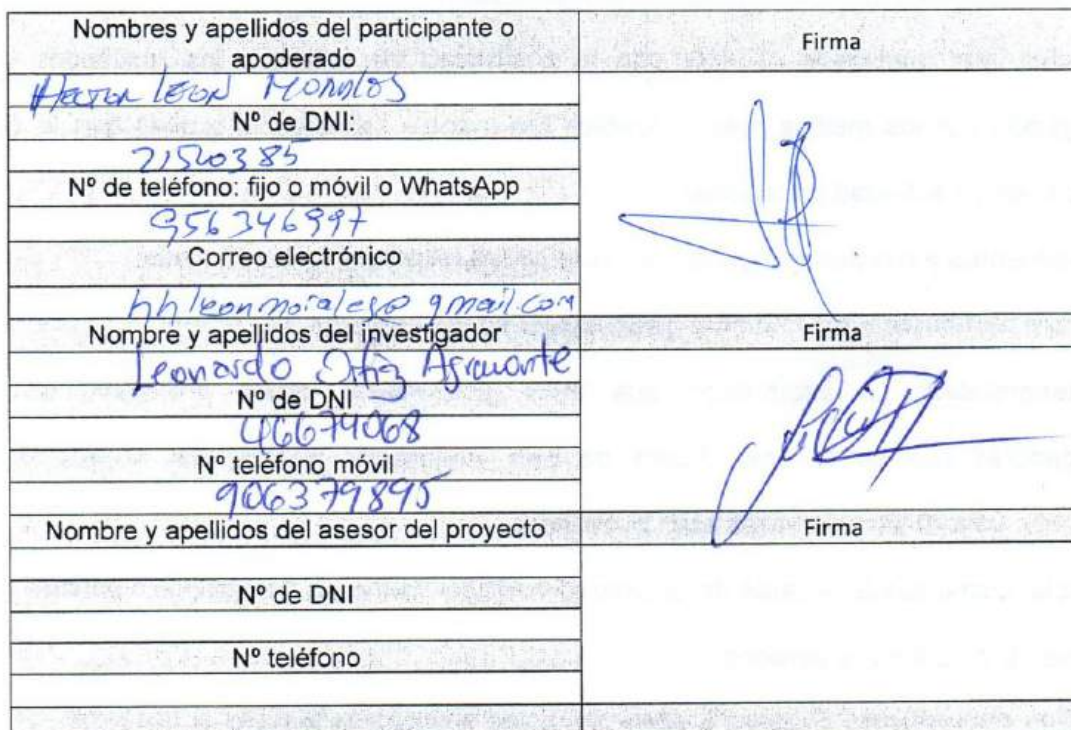 Nombres y apellidos del participante o
apoderado
Firma
HECTOR LEON MORALES
Nº de DNI:
21520385
Nº de teléfono: fijo o móvil o WhatsApp
956346997
Correo electrónico
hhleonmorales@gmail.com
Nombre y apellidos del investigador
Firma
Leonardo Ortiz Agramonte
Nº de DNI
46674068
Nº teléfono móvil
906379895
Nombre y apellidos del asesor del proyecto
Firma
Nº de DNI
Nº teléfono